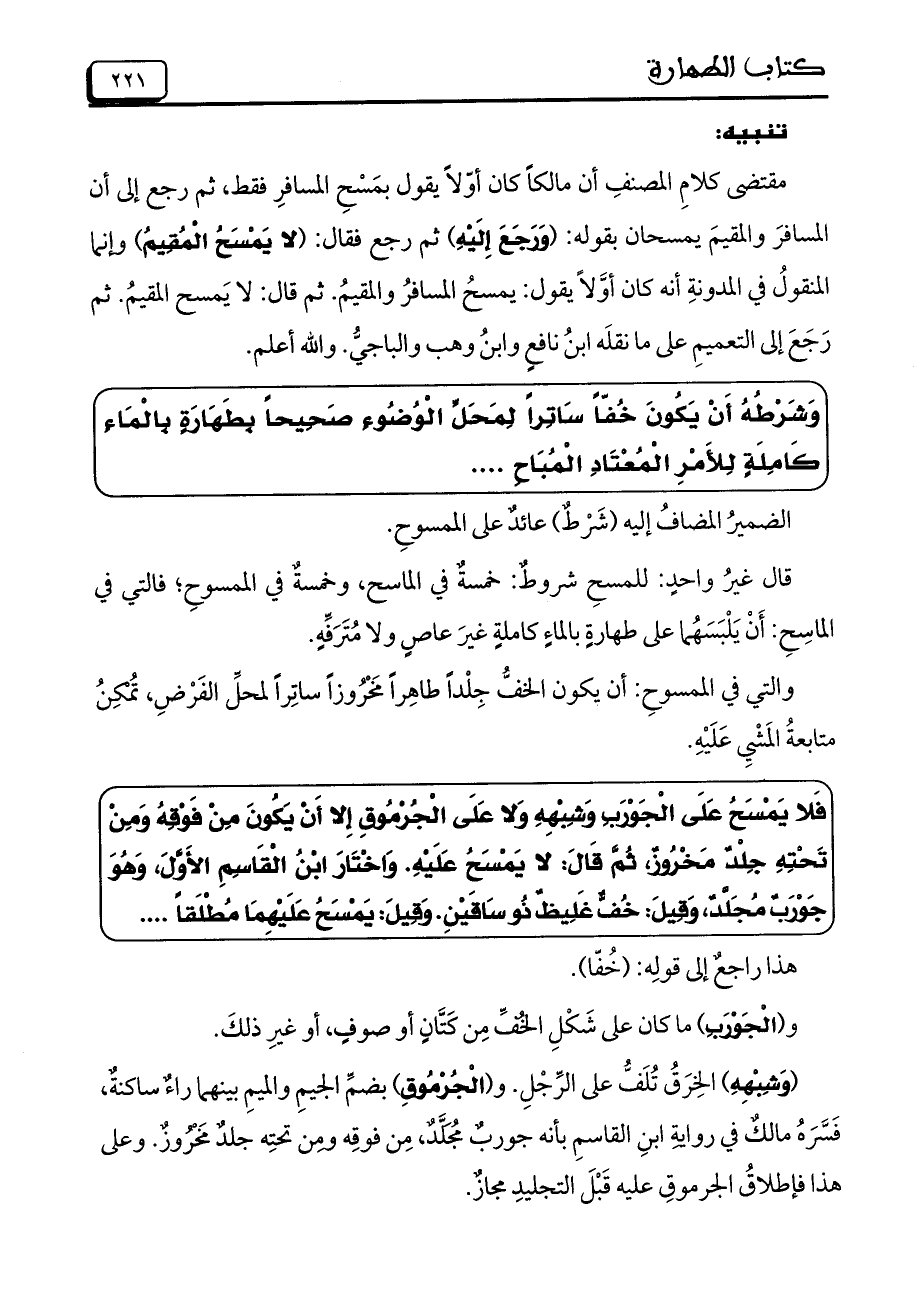 كتاب الطهارة
٢٢١
تنبيه:
مقتضى كلامِ المصنفِ أن مالكاً كان أوّلاً يقول بمَسْحِ المسافرِ فقط، ثم رجع إلى أن
المسافرَ والمقيمَ يمسحان بقوله: (وَرَجَعَ إِلَيْهِ) ثم رجع فقال: (لا يَمْسَحُ الْمُقِيمُ) وإنما
المنقولُ في المدونةِ أنه كان أوَّلاً يقول: يمسحُ المسافرُ والمقيمُ. ثم قال: لا يَمسح المقيمُ. ثم
رَجَعَ إلى التعميمِ على ما نقلَه ابنُ نافعٍ وابنُ وهب والباجيُّ. والله أعلم.
وَشَرْطُهُ أَنْ يَكُونَ خُفّاً سَاتِراً لِمَحَلِّ الْوُضُوءِ صَحِيحاً بِطَهَارَةٍ بِالْمَاءِ
كَامِلَةٍ لِلأَمْرِ الْمُعْتَادِ الْمُبَاحِ ....
الضميرُ المضافُ إليه (شَرْطٌ) عائدٌ على الممسوحِ.
قال غيرُ واحدٍ: للمسحِ شروطٌ: خمسةٌ في الماسح، وخمسةٌ في الممسوحِ؛ فالتي في
الماسِحِ: أَنْ يَلْبَسَهُما على طهارةٍ بالماءِ كاملةٍ غيرَ عاصٍ ولا مُتَرَفِّهٍ.
والتي في الممسوحِ: أن يكون الخفُّ جِلْداً طاهِراً مَخْرُوزاً ساتِراً لمحلِّ الفَرْضِ، تُمْكِنُ
متابعةُ المَشْيِ عَلَيْهِ.
فَلا يَمْسَحُ عَلَى الْجَوْرَبِ وَشِبْهِهِ وَلا عَلَى الْجُرْمُوقِ إِلا أَنْ يَكُونَ مِنْ فَوْقِهُ وَمِنْ
تَحْتِهِ جِلْدٌ مَخْرُوزٌ، ثُمَّ قَالَ: لا يَمْسَحُ عَلَيْهِ. وَاخْتَارَ ابْنُ الْقَاسِمِ الأَوَّلَ، وَهُوَ
جَوْرَبٌ مُجَلَّدٌ، وَقِيلَ: خُفٌّ غَلِيظٌ ذُو سَاقَيْنِ. وَقِيلَ: يَمْسَحُ عَلَيْهِمَا مُطْلَقاً ....
هذا راجعٌ إلى قولِه: (خُفّا).
و(الْجَوْرَبِ) ما كان على شَكْلِ الخُفِّ مِن كَتَّانٍ أو صوفٍ، أو غيرِ ذلكَ.
(وَشِبْهِهِ) الخِرَقُ تُلَفُّ على الرِّجْلِ. و(الْجُرْمُوقِ) بضمِّ الجيمِ والميمِ بينهما راءٌ ساكنةٌ،
فَسَّرَهُ مالكٌ في روايةِ ابنِ القاسمِ بأنه جوربٌ مُجَلَّدٌ، مِن فوقِه ومِن تحتِه جلدٌ مَخْرُوزٌ. وعلى
هذا فإطلاقُ الجرموقِ عليه قَبْلَ التجليدِ مجازٌ.